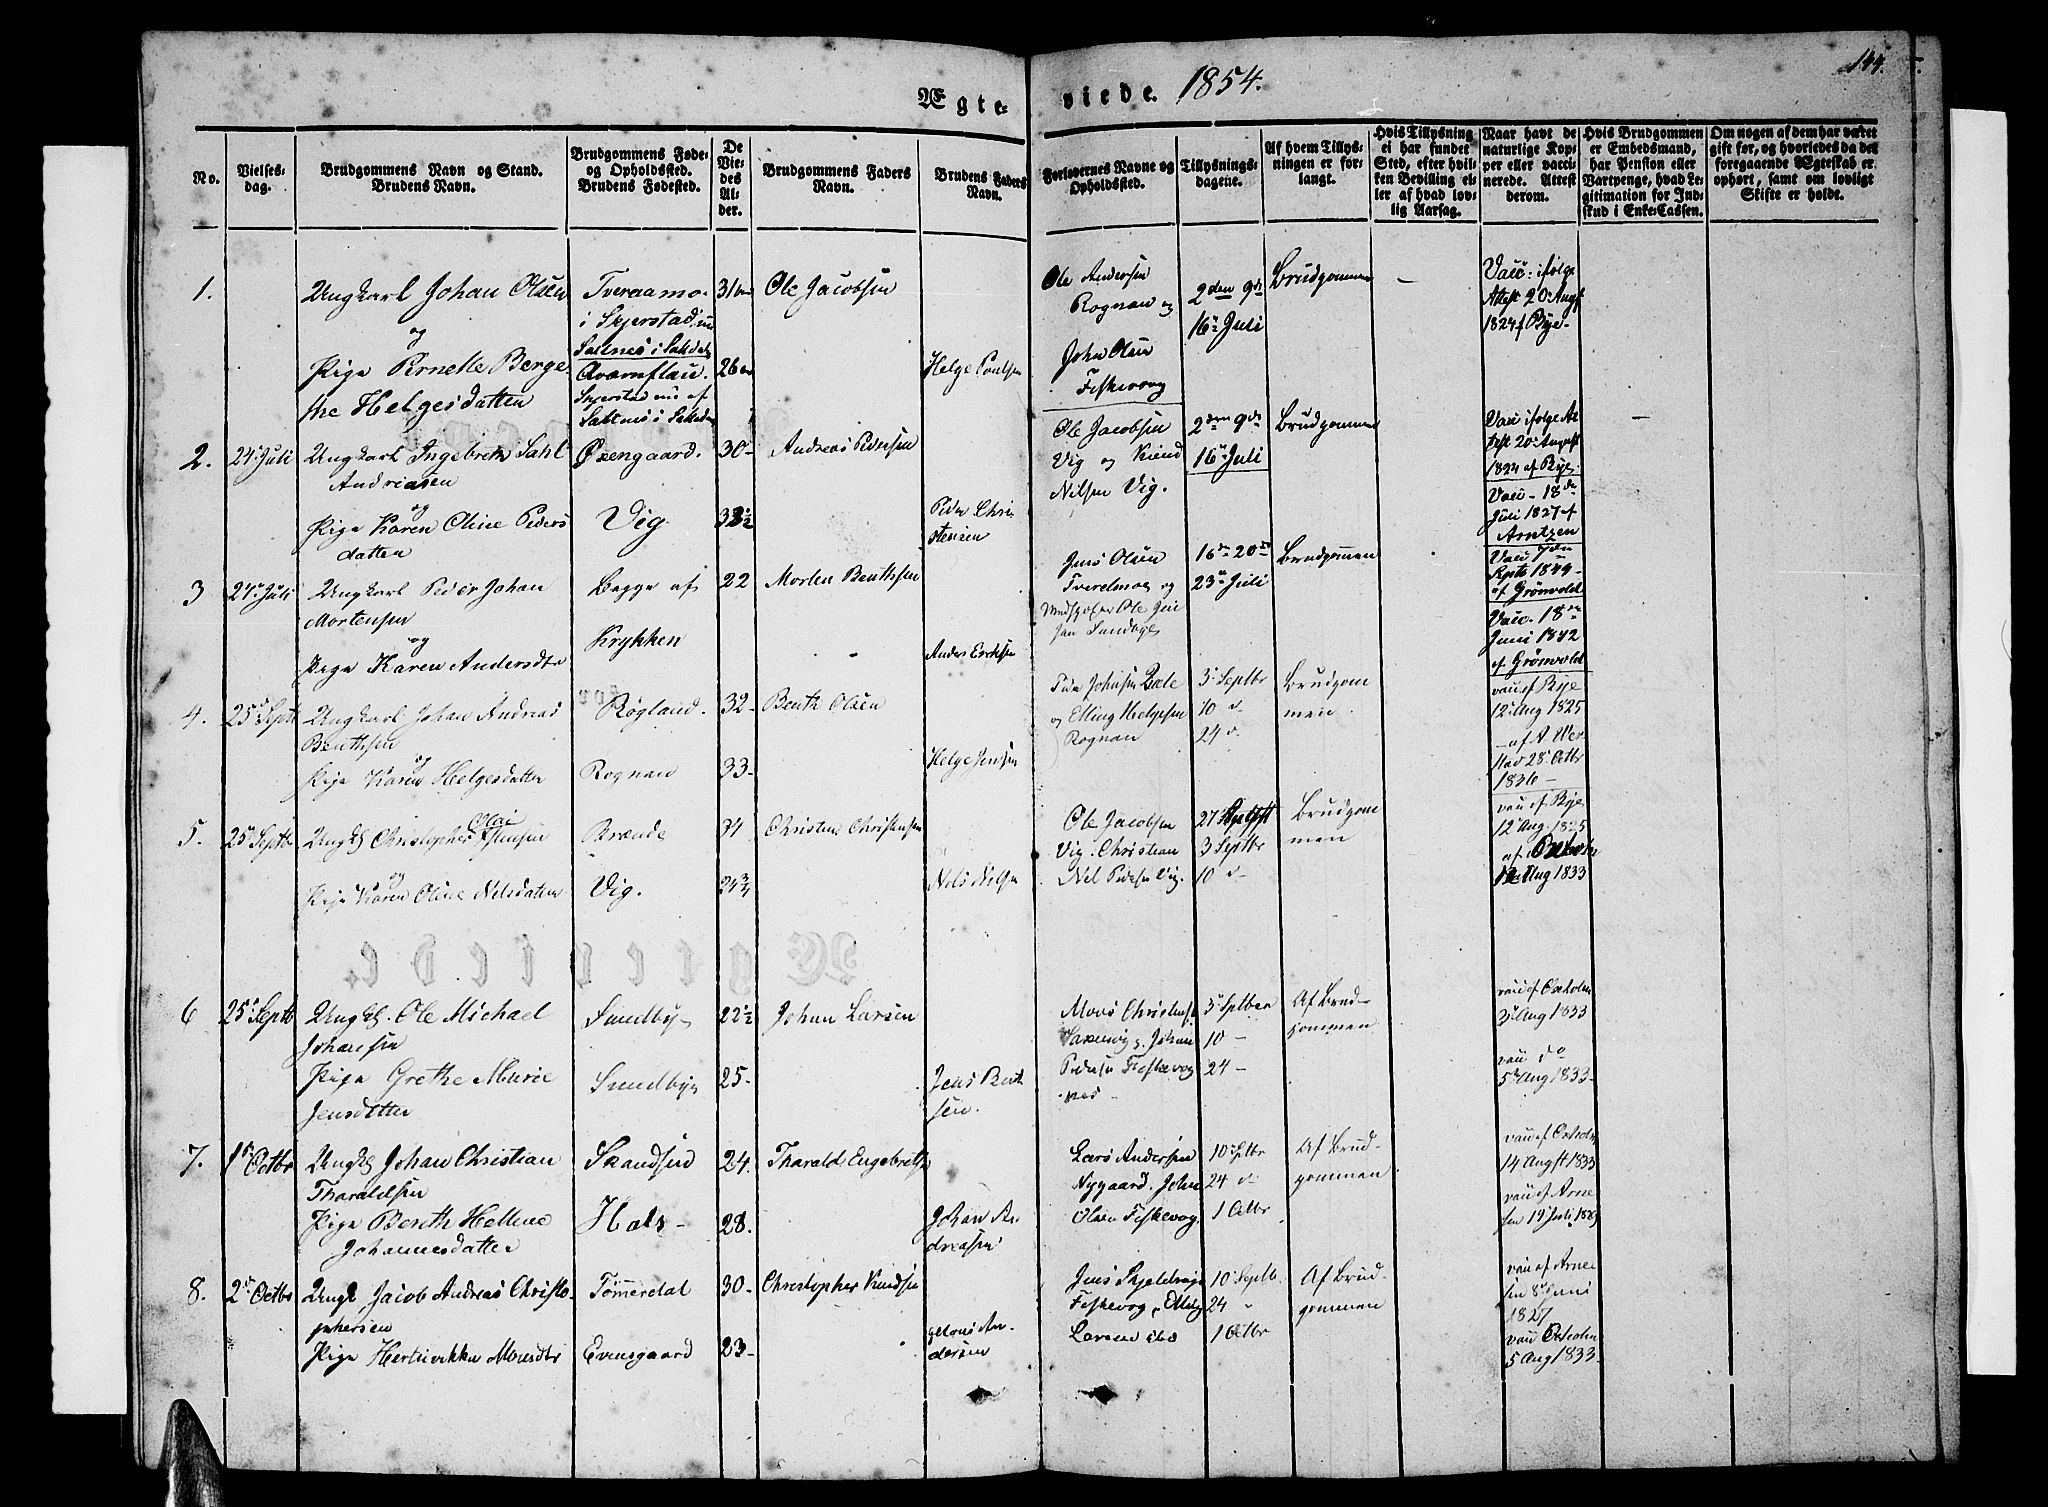 Ægteviede. 1854.
144.
No.
Vielsesdag.
Brudgommens Navn og Stand.
Brudens Navn.
Brudgommens Føde-
og Opholdssted.
Brudens Fødested.
De
Vie-
des
Al-
der.
Brudgommens Faders
Navn.
Brudens Faders
Navn.
Forlovernes Navne og
Opholdssted.
Tillysnings-
dagene.
Af hvem Tillys-
ningen er for-
langt.
Hvis Tillysning
ei har fundet
Sted, efter hvil-
ken Bevilling el-
ler af hvad lov-
lig Aarsag.
Naar havt de
naturlige Kop-
per eller vacci-
nerede. Attest
derom.
Hvis Brudgommen
er Embedsmand,
har Pension eller
Vartpenge, hvad Le-
gitimation for Ind-
skud i Enke-Cassen.
Om nogen af dem har været
gift før, og hvorledes da det
foregaaende Ægteskab er
ophørt, samt om lovligt
Skifte er holdt.
1.
Ungkarl Johan Olsen
og
Pige Helgesdatten
Tveraamo
i Skjerstad
Saltnes i
Qvænflau
Skjerstad
Saltnes i
31
26
Ole Jacobsen
Helge Poulsen
Ole Andersen
Rognan og
John Olsen
Fiskevog
2den 9de
16de Juli
Brudgommen
Vacc: ifølge
Attest 20 Aug
1824 f Bye
2. 24 Juli
Ungkarl Ingebreth Sahl
Andreasen
og
Pige Karen Oline Peders
datten
Øxengaard.
Vig
30
Andreas Pedersen
Peder Chri-
stensen
Ole Jacobsen
Vig og
Nilsen Vig.
2den 9de
16 Juli
Brudgommen
Vacc ifølge At
test 20 August
1824 af Rye
Vacc - 18de
Juli 1827 af
Arntzen
3 24 Juli
Ungkarl Peder Johan
Mortensen
og
Pige Karen Andersdtr
Begge af
Krykken
22
Morten Benthsen
Anders Eriksen
Jens Olsen
Tverelmog og
Ole
16de 20de
23 Juli
Brudgommen
Vacc 7den
Septb 1849
af Grønvold
Vacc. 18de
Juni 1842
af Grønvold
4. 25 Septb
Ungkarl Johan Andreas
Benthsen
og
Pige Karen Helgesdatter
Røgland.
Rognan
32
33
Benth Olsen
Helge Jensen
Peder Johnsen
og Elling Helgesen
Rognan
3 Septbr
10 d
24 d
Brudgom
men
vacc af Rye
12 Aug 1825
af A Wer
28 Octbr
1836
5. 25 Septbr
Ungk Christopher Olai
og
Pige Karen Oline Nilsdatter
Brænde
Vig.
34
24¾
Christen Christensen
Nils Nilsen
Ole Jacobsen
Vig. Christian
Nil Pedersen Vig.
27
3 Septbr
10 d
Brudgom
men
vacc af Rye
12 Aug 1825
af
Aug 1833
6 25 Septb
Ungk. Ole Michael
Johansen
Pige Grethe Marie
Jensdatter
Sundby
Sundby
22½
25
Johan Larsen
Jens Bent
sen.
Mons Christens
Johan
Pedersen Fiskevog
nes
3 Septber
10
24
Af Brud-
gommen
vacc af Oxholm
3 Aug 1833
vacc do
5 Aug 1833
7. 1 Octbr
Ungk Johan Christian
Tharaldsen
Pige Bereth Hellene
Johannesdatter
Hals
24.
28.
Tharald Engebretse
Johan An
dreasen
Lars Andersen
Nygaard. John
Olsen Fiskevog
10 Septbr
24 d
1 Octbr
Af Brud-
gommen
vacc af Oxholm
14 Augst 1833
vacc af Arne
sen 19 Juli
8. 2 Octbr
Ungk Jacob Andreas Christo-
phersen
Pige Monsdtr
Tømmerdal
Evensgaard
30
23
Christopher Knudsen
Mons An-
dersen
Jens Skjeldvog
Fiskevog
Larsen ibd
10 Septb.
24
1 Octbr
Af Brud-
gommen
vacc af Arne
sen 8 Juni
1827
vacc Oxholm
5 Aug 1833